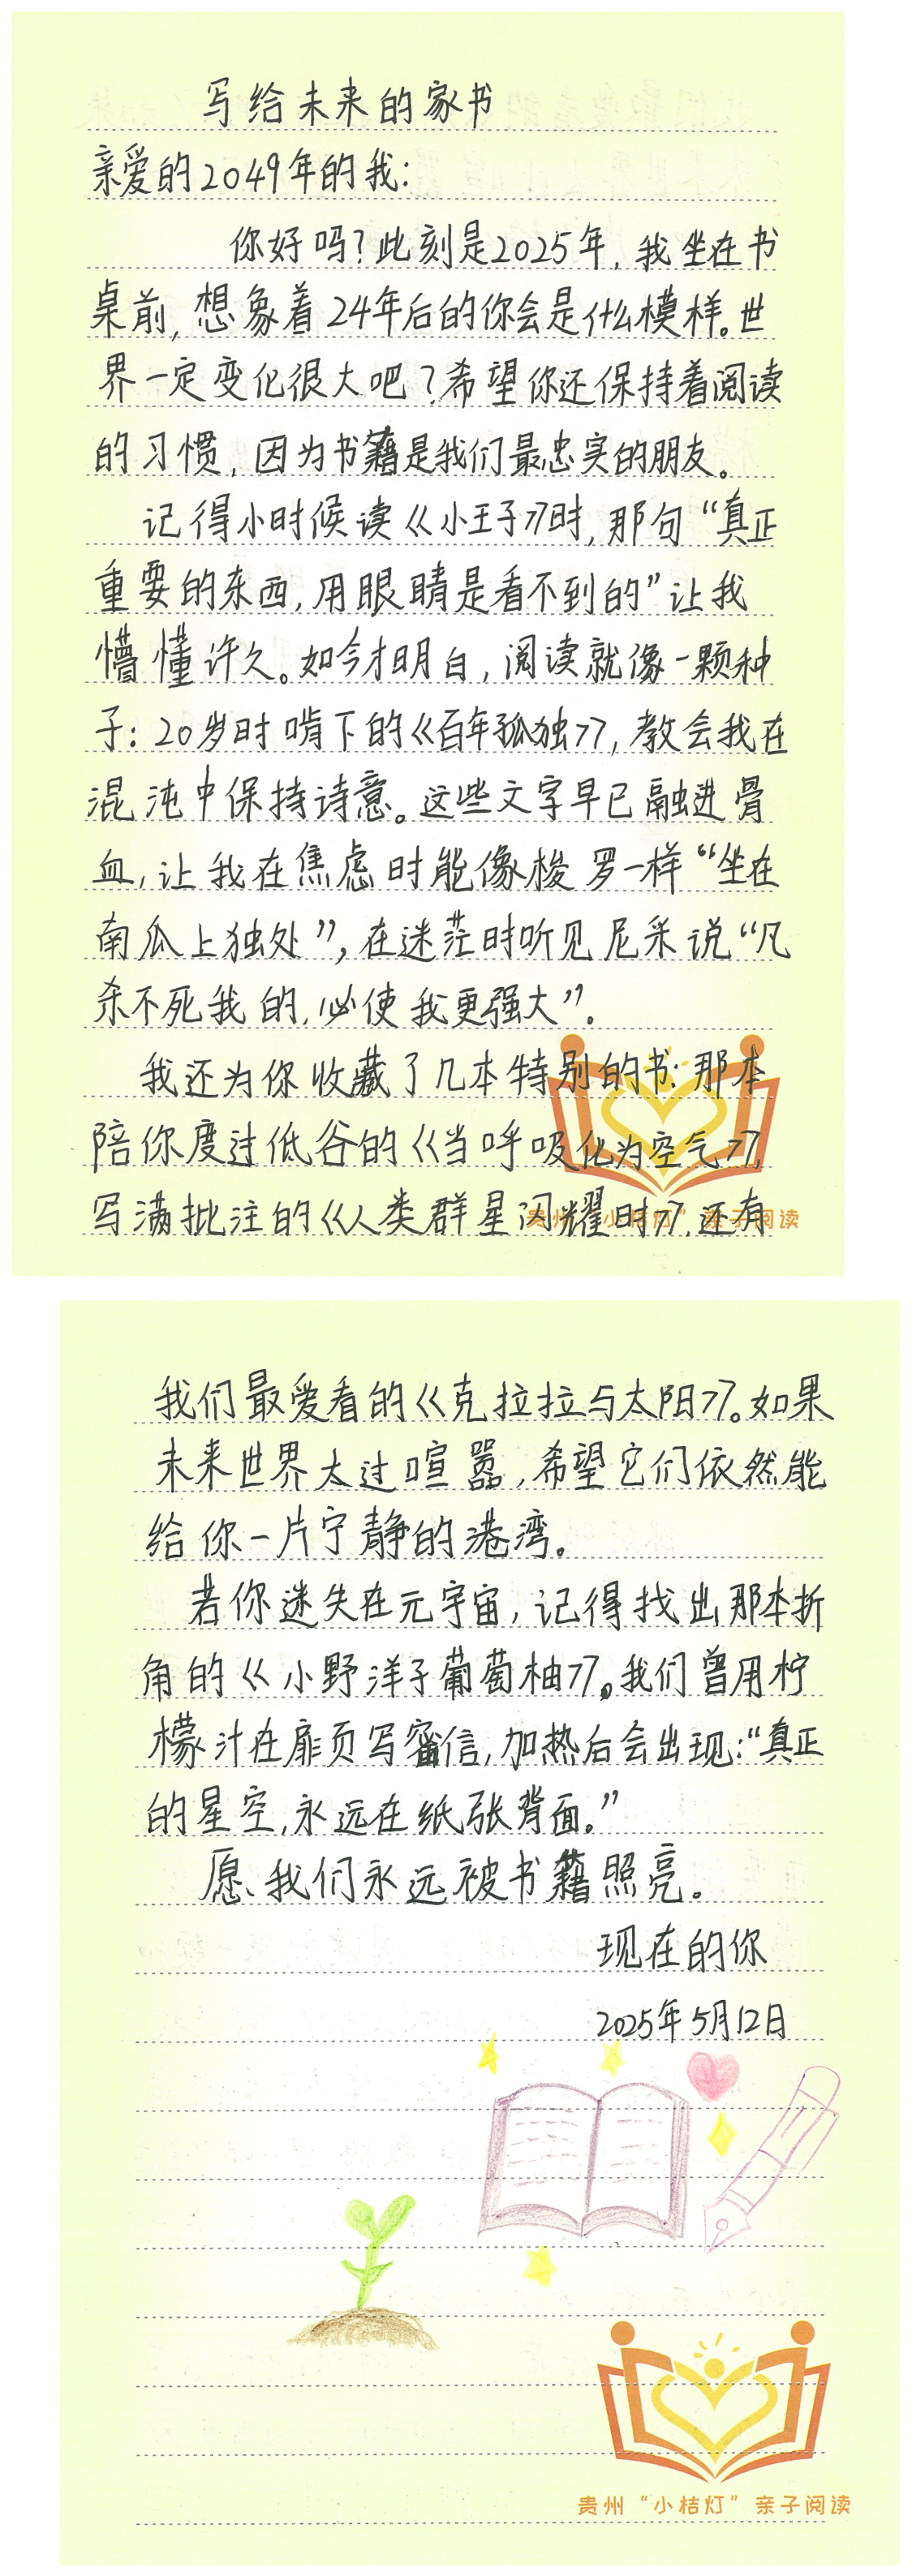 写给未来的家书
亲爱的2049年的我:
你好吗?此刻是2025年,我坐在书
桌前,想象着24年后的你会是什么模样。世
界一定变化很大吧?希望你还保持着阅读
的习惯,因为书籍是我们最忠实的朋友。
记得小时候读《小王子》时,那句“真正
重要的东西,用眼睛是看不到的”让我
懵懂许久。如今才明白,阅读就像一颗种
子:20岁时啃下的《百年孤独》,教会我在
混沌中保持诗意。这些文字早已融进骨
血,让我在焦虑时能像梭罗一样“坐在
南瓜上独处”,在迷茫时听见尼采说“凡
杀不死我的,必使我更强大”。
我还为你收藏了几本特别的书:那本
陪你度过低谷的《当呼吸化为空气》,
写满批注的《人类群星闪耀时》,还有
贵州“小桔灯”亲子阅读
我们最爱看的《克拉拉与太阳》。如果
未来世界太过喧嚣,希望它们依然能
给你一片宁静的港湾。
若你迷失在元宇宙,记得找出那本折
角的《小野洋子葡萄柚》。我们曾用柠
檬汁在扉页写密信,加热后会出现:“真正
的星空,永远在纸张背面。”
愿我们永远被书籍照亮。
现在的你
2025年5月12日
贵州“小桔灯”亲子阅读